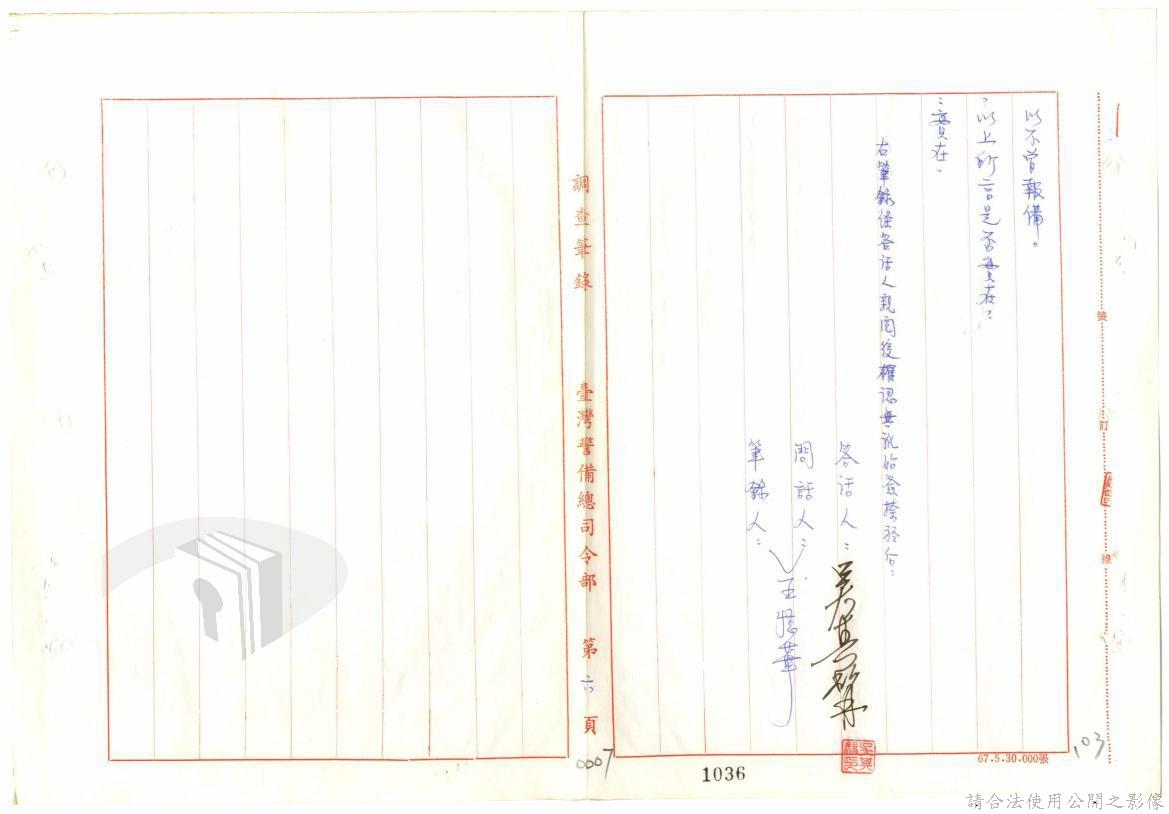 以不曾報備。
:以上所言是否實在?
:實在。
右筆錄經答話人親閱後確認無訛始簽捺於后:
答話人:
問話人:
筆錄人:
王 華
調查筆錄 臺灣警備總司令部 第六頁
裝 訂 線
67.5.30.000張
103
0007
1036
請合法使用公開之影像